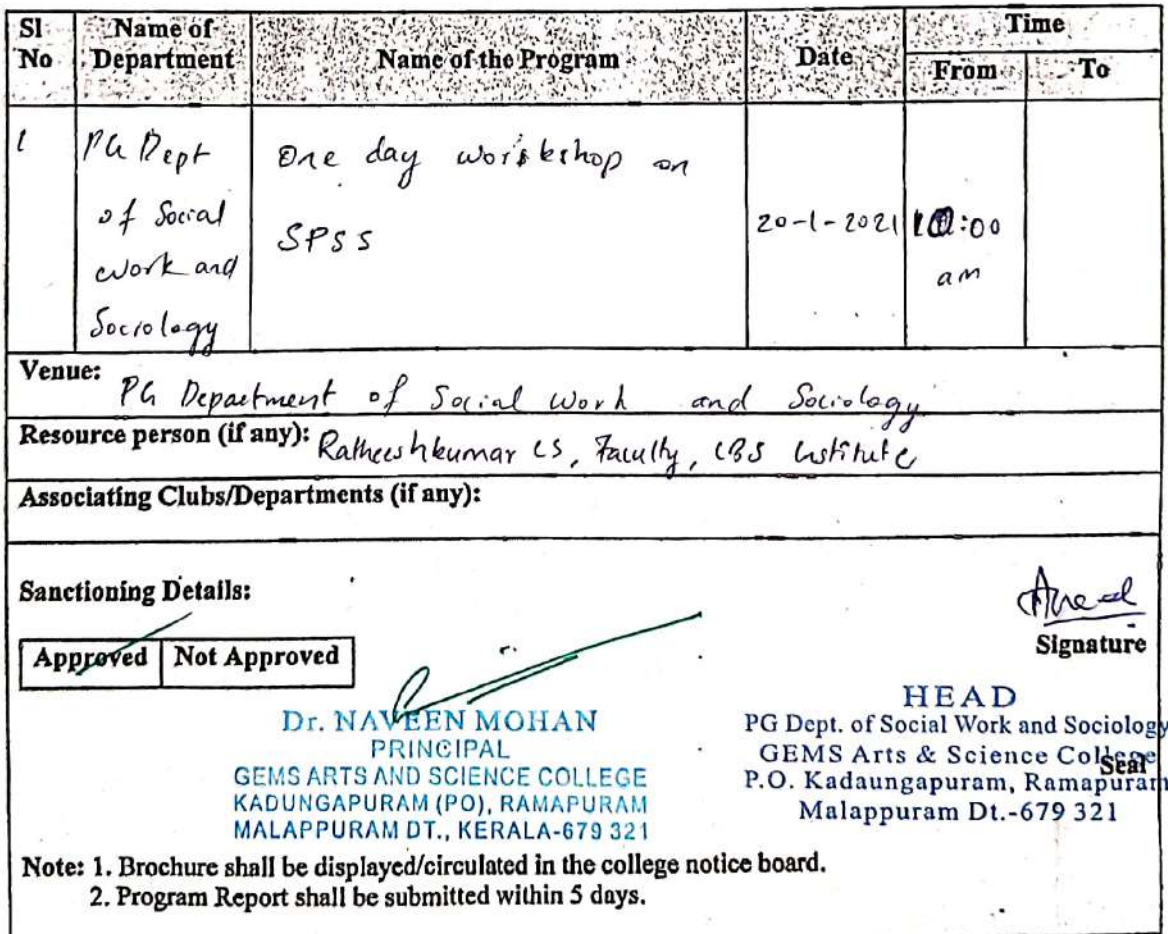 Sl No
Name of Department
Name of the Program
Date
Time
From
To
1
PG Dept of Social work and Sociology
One day workshop on SPSS
20-1-2021
10:00 am
Venue: PG Department of Social Work and Sociology
Resource person (if any): Ratheeshkumar CS, Faculty, LBS Institute
Associating Clubs/Departments (if any):
Sanctioning Details:
Approved Not Approved
Signature
Dr. NAVEEN MOHAN
PRINCIPAL
GEMS ARTS AND SCIENCE COLLEGE
KADUNGAPURAM (PO), RAMAPURAM
MALAPPURAM DT., KERALA-679 321
HEAD
PG Dept. of Social Work and Sociology
GEMS Arts & Science College
Seal
P.O. Kadaungapuram, Ramapuram
Malappuram Dt.-679 321
Note: 1. Brochure shall be displayed/circulated in the college notice board.
2. Program Report shall be submitted within 5 days.